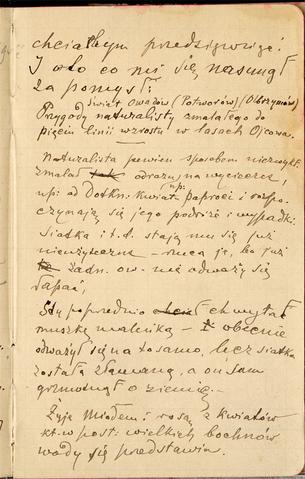 chciałbym przedsięwziąć!
I oto co mi się nasunął
za pomysł:
świat Owadów (Potworów) (Olbrzymów)
Przygody naturalisty zmalałego do
pięciu linii wzrostu w lasach Ojcowa.
Naturalista pewien sposobem niezwykł.
zmalał odrazu na wycieczce,
np: od Dotkn: kwiat: np: paproci i rozpo-
czynają się jego podróże i wypadki.
Siatka i t.d. stają mu się już
nieużyteczne – rzuca je, bo już
żadn. ow. nie odważy się
łapać,
Gdy poprzednio chwytał
muszkę maleńką – i obecnie
odważył się na to samo, lecz siatka
została złamaną, a on sam
grzmotnął o ziemię. –
Żyje Miodem i rosą z kwiatów
kt. w post: wielkich bochnów
wody się przedstawia.